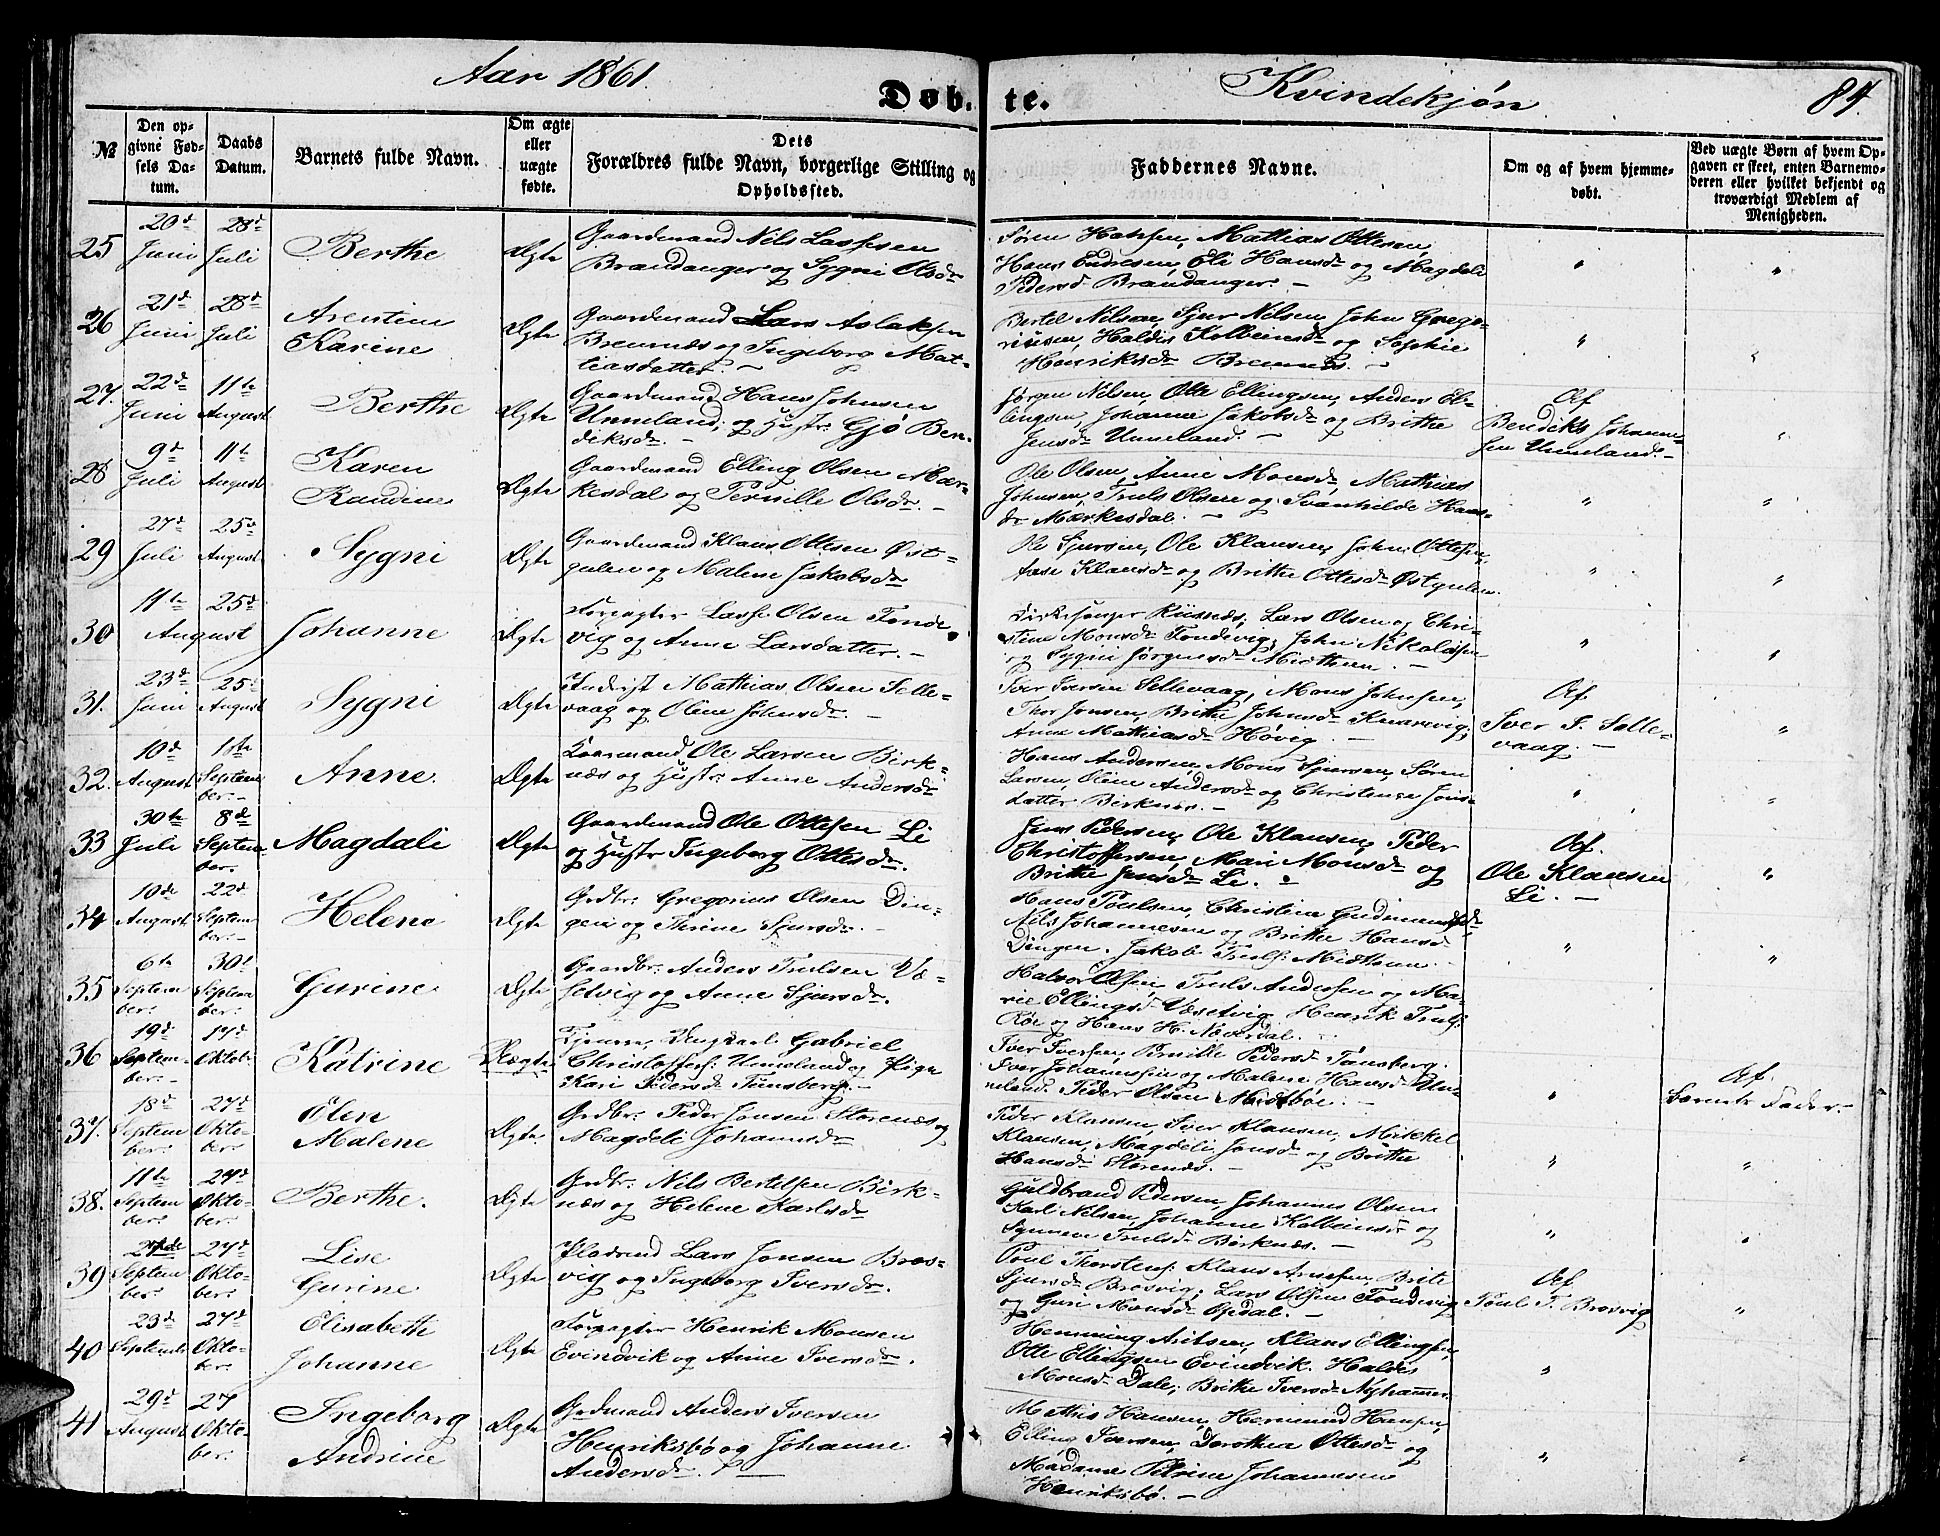 Aar 1861.
Døb. te.
Kvindekjøn
84.
№
Den opgivne Fødsels Datum.
Daabs Datum.
Barnets fulde Navn.
Om ægte eller uægte fødte.
Dets
Forældres fulde Navn, borgerlige Stilling og
Opholdssted.
Faddernes Navne.
Om og af hvem hjemmedøbt.
Ved uægte Børn af hvem Opgaven er skeet, enten Barnemoderen eller hvilket bekjendt og troværdigt Medlem af Menigheden.
25 20d Juni 28d Juli Berthe Ægte
Gaardmand Nils Lassesen
Brandanger og Sygni Olsdr
Søren Hansen, Mathias Ottesen,
Hans Endresen, Eli Hansdr og Magdeli
Pedersdr Brandanger. —
26 21d Juni 28d Juli Arentine Karine Ægte
Gaardmand Lars Aslaksen
Bremnes og Ingeborg Mat-
tiasdatter. —
Bertel Nilsen, Sjur Nilsen, John Grego-
riusen, Haldis Kolbeinsdr og Sophie
Henriksdr Bremnes. —
27. 22d Juni 11te August Berthe Ægte
Gaardmand Hans Johnsen
Unneland, og Hustr. Gjø Ben-
diksdr. —
Jørgen Nilsen, Ole Ellingsen, Anders El-
lingsen, Johanne Jakobsdr og Brithe
Jensdr Unneland. —
Af
Bendiks Johann-
sen Unneland. —
28 9d Juli 11te August Karen Randine Ægte
Gaardmand Elling Olsen Mær-
kesdal og Pernille Olsdr. —
Ole Olsen, Anne Monsdr, Mathias
Johnsen, Truls Olsen og Svanhilde Hans-
dr Mærkesdal. —
29 27d Juli 25d August Sygni Ægte
Gaardmand Klaus Ottesen Øst-
gulen og Malene Jakobsdr
Ole Sjursen, Ole Klausen, John Ottesen,
Aase Klausdr og Brithe Ottesdr Østgulen.
30 11te 25d August Johanne Ægte
Forpagter Lasse Olsen Fonde-
vig og Anne Larsdatter. —
Kirkesanger Lars Olsen og Chri-
stine Monsdr Fondevig, John Nikolaisen
og Sygni Jørgensdr Midthun. —
31. 23d Juni 25d August Sygni Ægte
Inderst Mathias Olsen Selle-
vaag og Oline Johnsdr. —
Iver Iversen Sellevaag, Mons Johnsen,
Thor Jonsen, Brithe Johnsdr Knarvig,
Anne Mathiasdr Høvig. —
Af.
Iver I. Selle-
vaag. —
32. 10d August 1ste September. Anne Ægte
Gaarmand Ole Larsen Birk-
næs og Hustr. Anne Andersdr
Hans Andersen, Mons Sjursen, Søren
Larsen, Oline Andersdr og Christense Jons-
datter Birknæs. —
33 30te Juli 8de September. Magdali Ægte
Gaardmand Ole Ottesen Li
og Hustr Ingeborg Ottesdr.
Jens Pedersen, Ole Klausen, Peder
Christoffersen, Mari Monsdr og
Brithe Jensdr Li. —
Af.
Ole Klausen
Li. —
34 10de August 22d September. Helene Ægte
Grdbr. Gregorius Olsen Din-
gen og Thrine Sjursdr. —
Hans Truelsen, Christine Gudmundsdr
Nils Johannesen og Brithe Hansdr
Dingen. Jakob Truls. Midthun.
35 6te September 30te September. Gurine Ægte
Gaardbr. Anders Trulsen Væ-
setvig og Anne Sjursdr.
Halvor Olsen, Truls Andersen og Ma-
rie Ellingsdr Væsetvig. Henrik Truls.
Røe og Hans H. Nøverdal.
36 19d September. 17d Oktob: Katrine Uægte
Ungkarl Gabriel
Christoffers. Unneland og Pige
Kari Pedersdr Tønsberg. —
Iver Iversen, Pernille Pedersdr Tønsberg.
Iver Johannesen og Malene Hansdr Un-
neland. Peder Olsen Midtbøe. —
Af.
Barnets Fader. —
37. 18d September. 27d Oktober. Elen Malene Ægte.
Grdbr. Peder Jonsen Storenæs og
Magdeli Johannsdr
Peder Klausen, Iver Klausen, Mikkel
Klausen, Magdeli Jonsdr og Brithe
Hansdr Storenæs. —
38. 11te September. 27d Oktober. Berthe. Ægte
Grdbr. Nils Bertelsen Birk-
næs og Helene Karlsdr
Guldbrand Pedersen, Johannes Olsen
Karl Nilsen, Johanne Kolbeinsdr og
Synneve Trulsdr Birknæs. —
39 September. 27d Oktober. Lise Gurine Ægte
Pladsmd Lars Jonsen Bros-
vig og Ingeborg Iversdr.
Poul Thorstens. Klaus Arnesen, Brite
Sjursdr Brosvig, Lars Olsen Fondevig
og Guri Monsdr Opdal. —
Af
Poul T. Brosvig
40 23d Septembr 27d Oktober. Elisabeth Johanne Ægte
Forpagter Henrik Monsen
Evindvik og Anne Iversdr.
Hemming Antsen, Klaus Ellingsen,
Otte Ellingsen Evindvik. Haldis
Monsdr Dale, Brithe Iversdr Nyhammer
41 29d August 27 Oktober. Ingeborg Andrine Ægte
Grdmand Anders Iversen
Henriksbø og Johanne
Andersdr. —
Mathis Hansen, Hermund Hansen,
Elling Iversen, Dorothea Ottesdr og
Madame Petrine Johannesen
Henriksbø. —